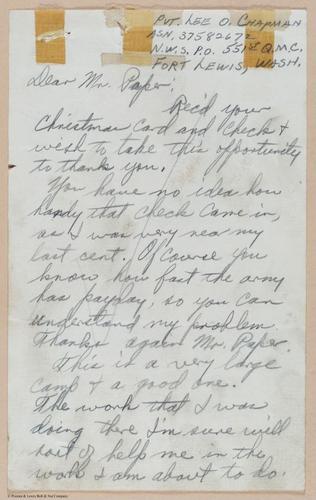 Pvt. Lee O. Chapman
ASN. 37582672
N.W.S. P.O. 551st Q.M.C.
Fort Lewis, Wash.
Dear Mr. Paper:
Rec'd your
Christmas Card and Check &
wish to take this opportunity
to thank you.
You have no idea how
handy that check came in,
as I was very near my
last cent. Of Course you
know how fast the army
has payday, so you can
understand my problem.
Thanks again Mr. Paper.
This is a very large
camp & a good one.
The work that I was
doing there I'm sure will
sort of help me in the
work I am about to do.